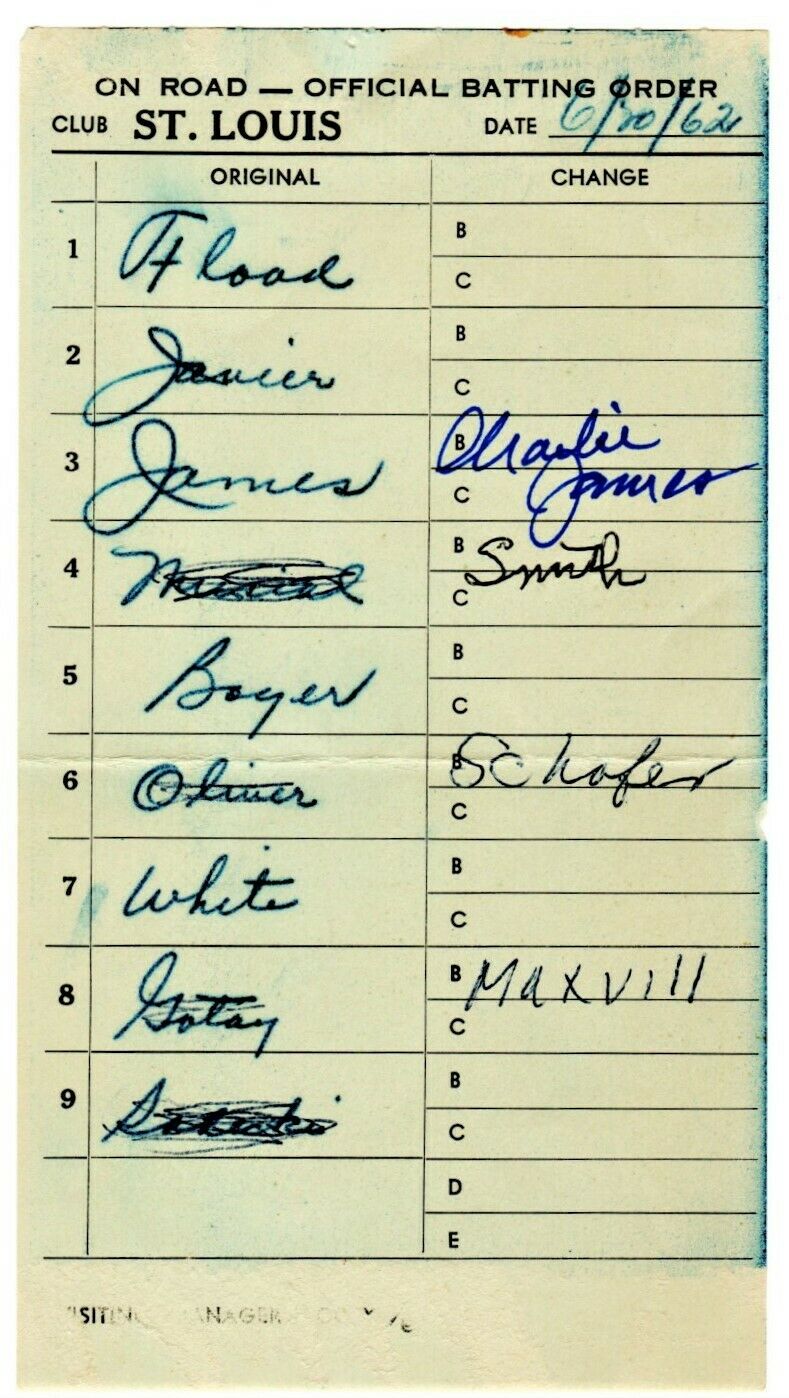 ON ROAD — OFFICIAL BATTING ORDER
CLUB ST. LOUIS DATE 6/20/62
ORIGINAL CHANGE
1 Flood B
C
2 Javier B
C
3 James B Charlie
C James
4 Musial B Smith
C
5 Boyer B
C
6 Oliver B Schofer
C
7 White B
C
8 Gotay B Maxvill
C
9 Sadecki B
C
D
E